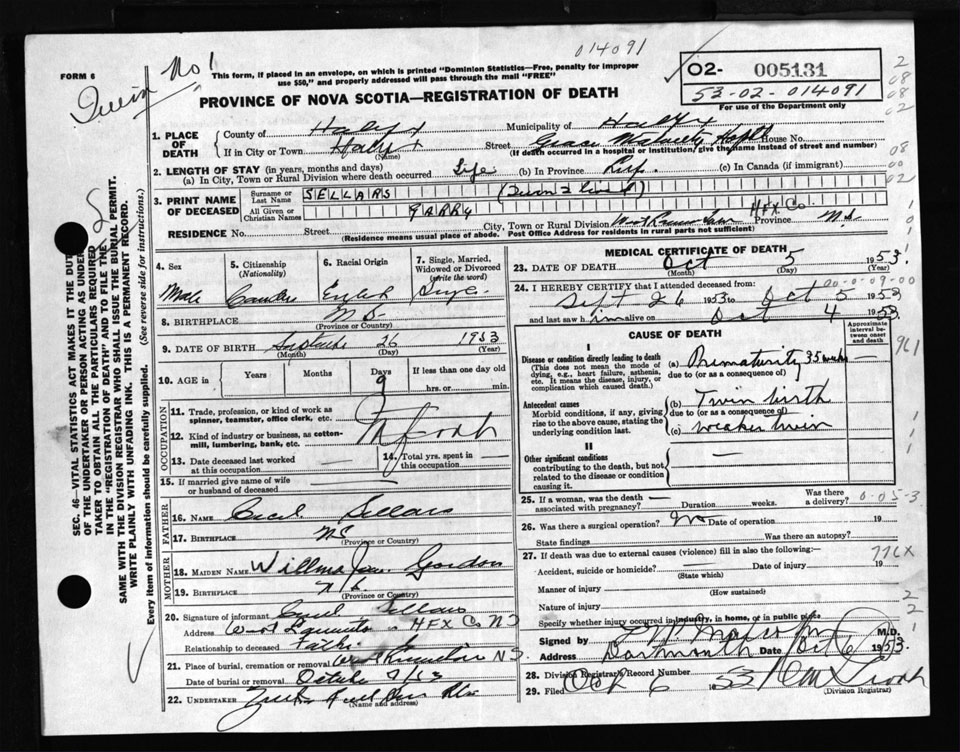 014091
FORM 6
Twin No 1
This form, if placed in an envelope, on which is printed "Dominion Statistics—Free, penalty for improper
use $50," and properly addressed will pass through the mail "FREE"
02- 005131
53-02-014091
For use of the Department only
PROVINCE OF NOVA SCOTIA—REGISTRATION OF DEATH
1. PLACE OF DEATH
County of Halifax Municipality of Halifax
If in City or Town Halifax (Name) Street Grace Maternity Hospital House No.
(If death occurred in a hospital or institution, give the name instead of street and number)
2. LENGTH OF STAY (in years, months and days)
(a) In City, Town or Rural Division where death occurred Life (b) In Province Life (c) In Canada (if immigrant)
3. PRINT NAME OF DECEASED
Surname or Last Name SELLARS (Twin
All Given or Christian Names GARRY
HFX Co.
RESIDENCE No. Street City, Town or Rural Division West Province N.S.
(Residence means usual place of abode. Post Office Address for residents in rural parts not sufficient)
4. Sex Male
5. Citizenship (Nationality)
6. Racial Origin
7. Single, Married, Widowed or Divorced (write the word) Single
8. BIRTHPLACE N.S. (Province or Country)
9. DATE OF BIRTH September (Month) 26 (Day) 1953 (Year)
10. AGE in Years Months Days 9 If less than one day old hrs. or min.
OCCUPATION
11. Trade, profession, or kind of work as spinner, teamster, office clerk, etc.
12. Kind of industry or business, as cotton-mill, lumbering, bank, etc.
13. Date deceased last worked at this occupation —
14. Total yrs. spent in this occupation —
15. If married give name of wife or husband of deceased —
FATHER
16. NAME Cecil Sellars
17. BIRTHPLACE N.S. (Province or Country)
MOTHER
18. MAIDEN NAME Willma Jean Gordon
19. BIRTHPLACE N.S. (Province or Country)
20. Signature of informant Cecil Sellars
Address West HFX Co NS
Relationship to deceased Father
21. Place of burial, cremation or removal West N.S.
Date of burial or removal October 7/53
22. UNDERTAKER (Name and Address)
MEDICAL CERTIFICATE OF DEATH
23. DATE OF DEATH Oct (Month) 5 1953. (Year)
24. I HEREBY CERTIFY that I attended deceased from:
Sept 26 1953 to Oct 5 1953
and last saw him alive on Oct 4 1953.
CAUSE OF DEATH
Approximate interval between onset and death
I
Disease or condition directly leading to death
(This does not mean the mode of dying, e.g., heart failure, asthenia, etc. It means the disease, injury, or complication which caused death.)
(a) Prematurity 35 weeks —
due to (or as a consequence of)
Antecedent causes
Morbid conditions, if any, giving rise to the above cause, stating the underlying condition last.
(b) Twin birth
due to (or as a consequence of)
(c) weaker twin
II
Other significant conditions
contributing to the death, but not related to the disease or condition causing it.
25. If a woman, was the death associated with pregnancy? — Duration weeks. Was there a delivery?
26. Was there a surgical operation? No Date of operation 19
State findings Was there an autopsy?
27. If death was due to external causes (violence) fill in also the following:—
Accident, suicide or homicide? (State which) Date of injury 19
Manner of injury (How sustained)
Nature of injury
Specify whether injury occurred in industry, in home, or in public place
Signed by M.D.
Address Dartmouth Date Oct 6 1953.
28. Division Registrar's Record Number
29. Filed Oct 6 1953 (Division Registrar)
961
776X
SEC. 46—VITAL STATISTICS ACT MAKES IT THE DUTY
OF THE UNDERTAKER OR PERSON ACTING AS UNDER-
TAKER TO OBTAIN ALL THE PARTICULARS REQUIRED
IN THE "REGISTRATION OF DEATH" AND TO FILE THE
SAME WITH THE DIVISION REGISTRAR WHO SHALL ISSUE THE BURIAL PERMIT.
WRITE PLAINLY WITH UNFADING INK. THIS IS A PERMANENT RECORD.
Every item of information should be carefully supplied. (See reverse side for instructions.)